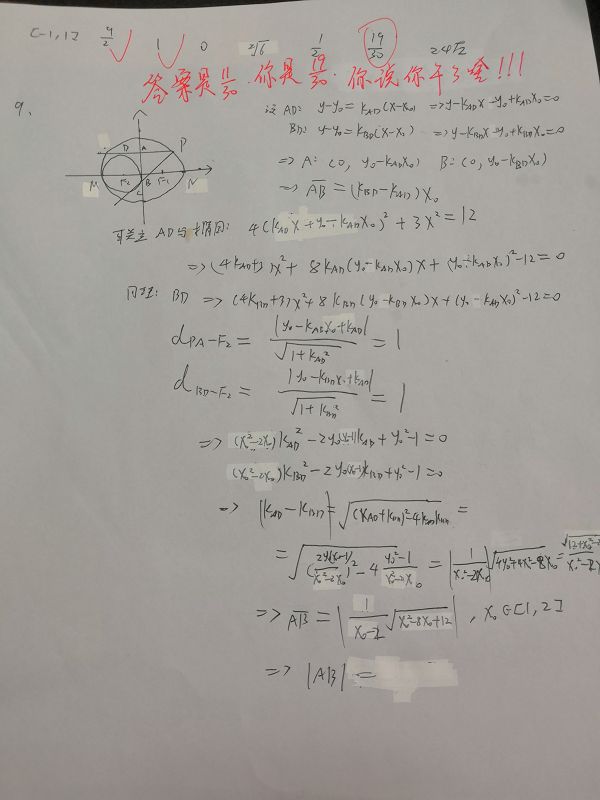 [-1,1]  9/2  1  0  2√6  1/2  19/30  24√2
答案是11/30·你是19/30·你说你午了啥!!!
9、
设AD: y-y₀=k_AD(x-x₀) ⇒ y-k_ADx-y₀+k_ADx₀=0
BD: y-y₀=k_BD(x-x₀) ⇒ y-k_BDx-y₀+k_BDx₀=0
D A P
M F₂ B F₁ N
⇒ A: (0, y₀-k_ADx₀) B: (0, y₀-k_BDx₀)
⇒ AB=(k_BD-k_AD)x₀
AD与椭圆: 4(k_ADx+y₀-k_ADx₀)²+3x²=12
⇒ (4k_AD+3)x²+8k_AD(y₀-k_ADx₀)x+(y₀-k_ADx₀)²-12=0
同理: BD ⇒ (4k_BD+3)x²+8k_BD(y₀-k_BDx₀)x+(y₀-k_ADx₀)²-12=0
d_PA-F₂=|y₀-k_ADx₀+k_AD|/√(1+k_AD²)=1
d_BD-F₂=|y₀-k_BDx₀+k_AD|/√(1+k_BD²)=1
⇒ (x₀²-2x₀)k_AD²-2y₀(x₀-1)k_AD+y₀²-1=0
(x₀²-2x₀)k_BD²-2y₀(x₀-1)k_BD+y₀²-1=0
⇒ |k_AD-k_BD|=√((k_AD+k_BD)²-4k_ADk_BD)=
=√((2y₀(x₀-1)/(x₀²-2x₀))²-4(y₀²-1)/(x₀²-2x₀))=|1/(x₀²-2x₀)|√(4y₀²+4x²-8x₀)=
⇒ AB=|1/(x₀-2)√(x₀²-8x₀+12)|, x₀∈[1,2]
⇒ |AB|=